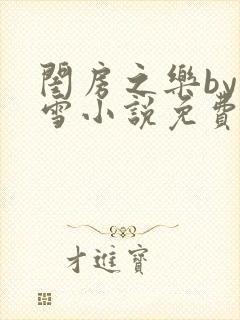 閨房之樂by
雪小說免費
才進寶